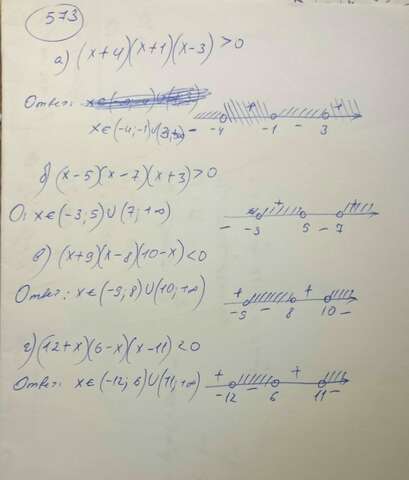 573
а) (x+4)(x+1)(x-3) > 0
Ответ:
x ∈ (-4; -1) ∪ (3; +∞)
- + - +
-4 -1 3
б) (x-5)(x-7)(x+3) > 0
О: x ∈ (-3; 5) ∪ (7; +∞)
- + - +
-3 5 7
в) (x+9)(x-8)(10-x) < 0
Ответ: x ∈ (-9; 8) ∪ (10; +∞)
+ - + -
-9 8 10
г) (12+x)(6-x)(x-11) < 0
Ответ: x ∈ (-12; 6) ∪ (11; +∞)
+ - + -
-12 6 11